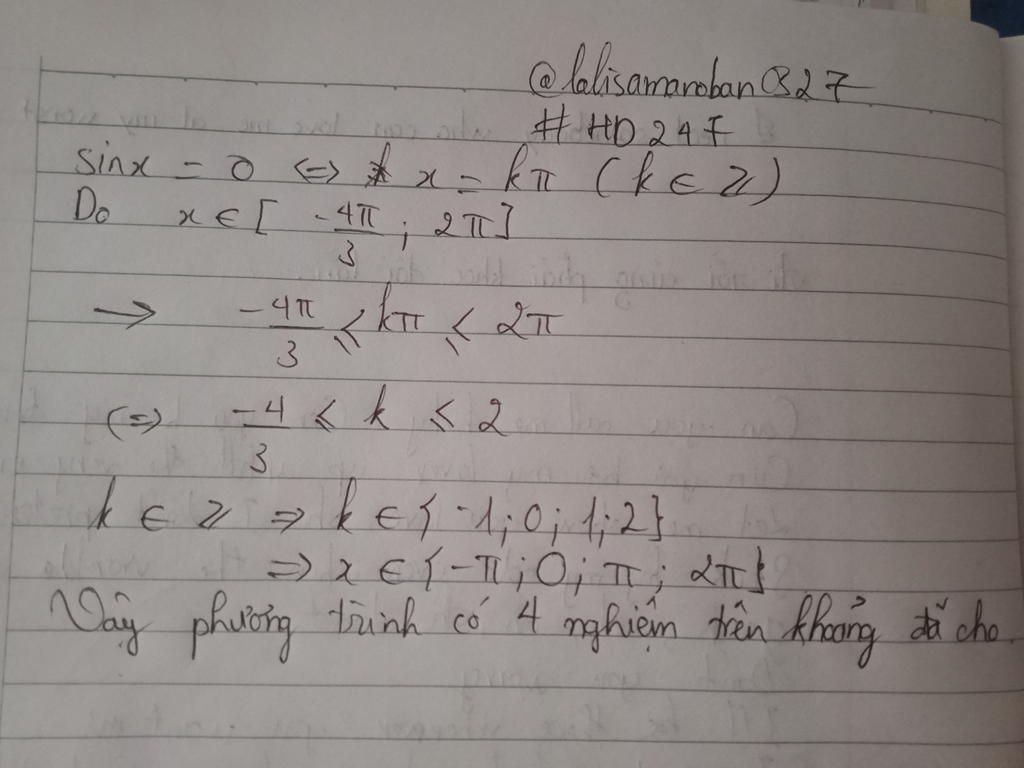 @lalisamanoban0327
#HD247
sinx = 0 <=> x = kπ (k ∈ ℤ)
Do x ∈ [ -4π/3 ; 2π ]
→ -4π/3 ≤ kπ ≤ 2π
(=) -4/3 ≤ k ≤ 2
k ∈ ℤ => k ∈ { -1 ; 0 ; 1 ; 2 }
=> x ∈ { -π ; 0 ; π ; 2π }
Vậy phương trình có 4 nghiệm trên khoảng đã cho.